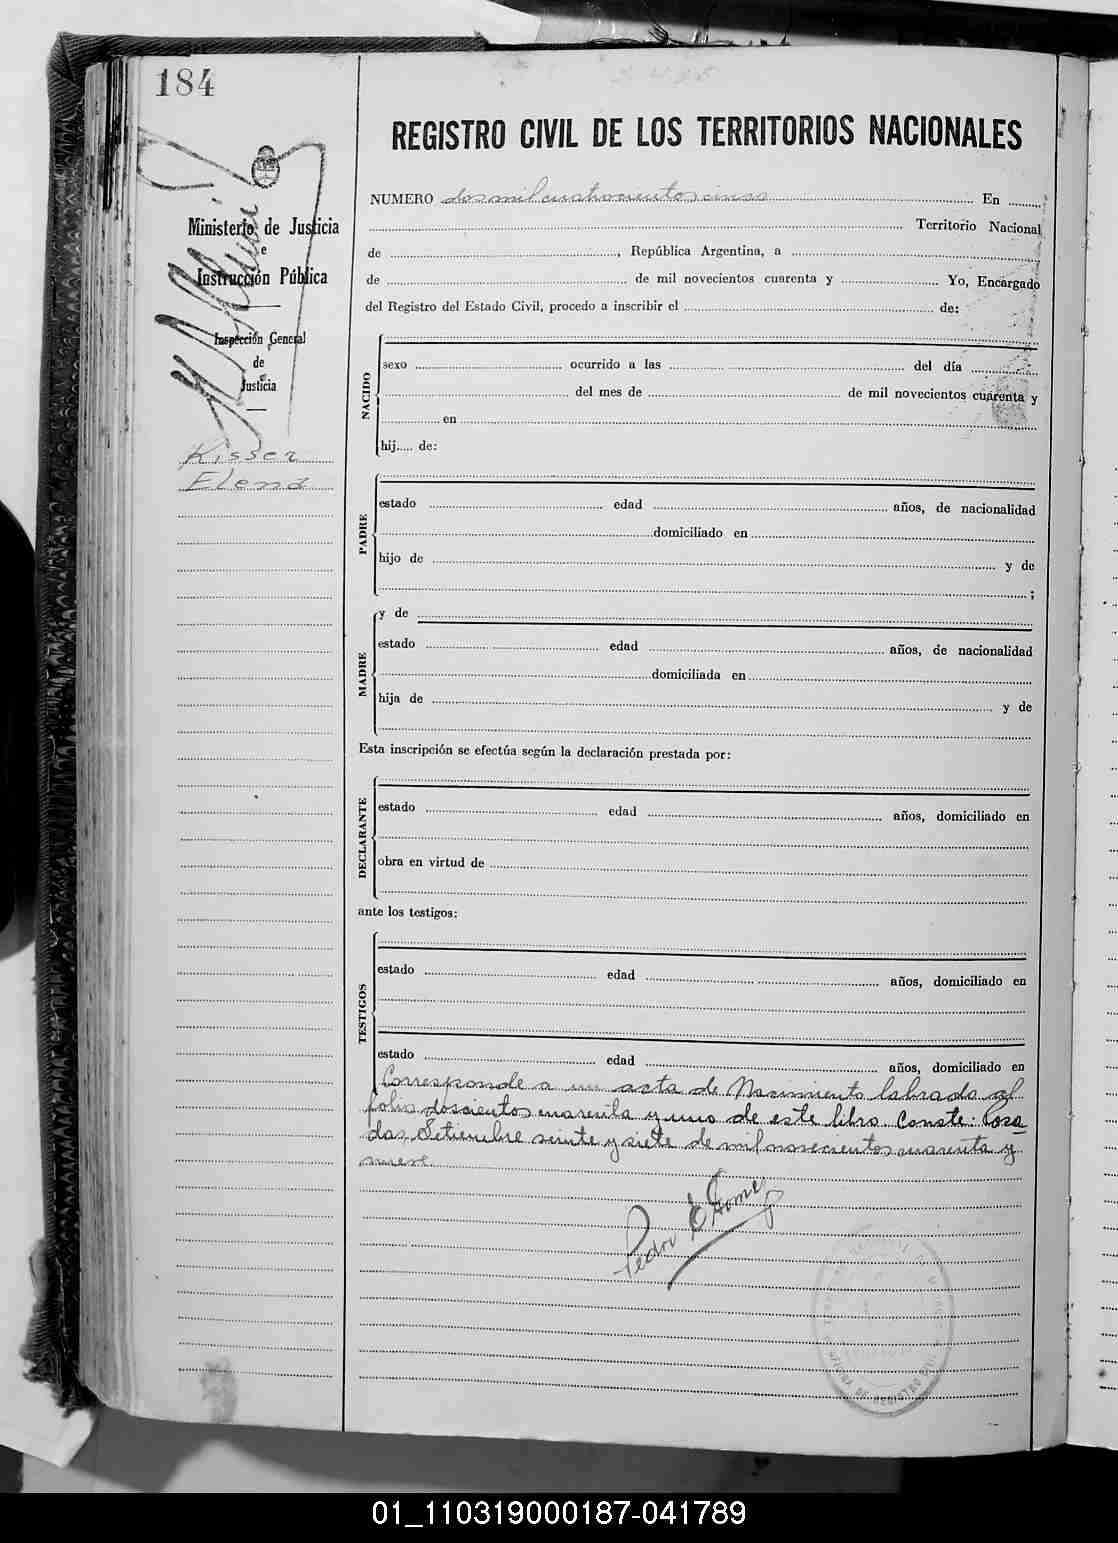 184
REGISTRO CIVIL DE LOS TERRITORIOS NACIONALES
Ministerio de Justicia
e
Instrucción Pública
Inspección General
de
Justicia
Kisser
Elena
NUMERO dos mil cuatrocientos cinco En
Territorio Nacional
de , República Argentina, a
de de mil novecientos cuarenta y Yo, Encargado
del Registro del Estado Civil, procedo a inscribir el de:
NACIDO
sexo ocurrido a las del día
del mes de de mil novecientos cuarenta y
en
hij..... de:
PADRE
estado edad años, de nacionalidad
domiciliado en
hijo de y de
;
MADRE
y de
estado edad años, de nacionalidad
domiciliada en
hija de y de
Esta inscripción se efectúa según la declaración prestada por:
DECLARANTE
estado edad años, domiciliado en
obra en virtud de
ante los testigos:
TESTIGOS
estado edad años, domiciliado en
estado edad años, domiciliado en
Corresponde a un acta de Nacimiento labrada al
folio doscientos cuarenta y uno de este libro. Conste: Posa
das, Setiembre veinte y siete de mil novecientos cuarenta y
nueve.
Pedro E Gomez
OFICINA DE REGISTRO CIVIL
01_110319000187-041789